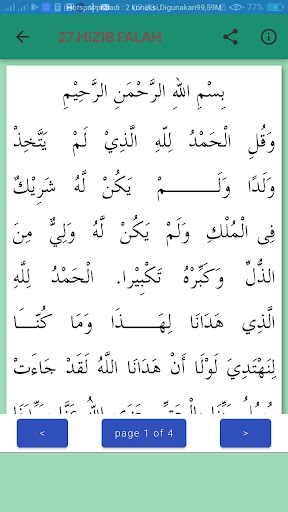 Hotspot pribadi : 2 koneksi,Digunakan99,59M
77%
27.HIZIB FALAH
بِسْمِ اللهِ الرَّحْمَنِ الرَّحِيْمِ
وَقُلِ الْحَمْدُ لِلّهِ الَّذِيْ لَمْ يَتَّخِذْ
وَلَدًا وَلَـــــمْ يَكُنْ لَهُ شَرِيْكٌ
فِى الْمُلْكِ وَلَمْ يَكُنْ لَهُ وَلِيٌّ مِنَ
الذُّلِّ وَكَبِّرْهُ تَكْبِيْرا. الْحَمْدُ لِلَّهِ
الَّذِي هَدَانَا لِهَـــذَا وَمَا كُنَّــا
لِنَهْتَدِيَ لَوْلَا أَنْ هَدَانَا اللَّهُ لَقَدْ جَاءَتْ
<
page 1 of 4
>